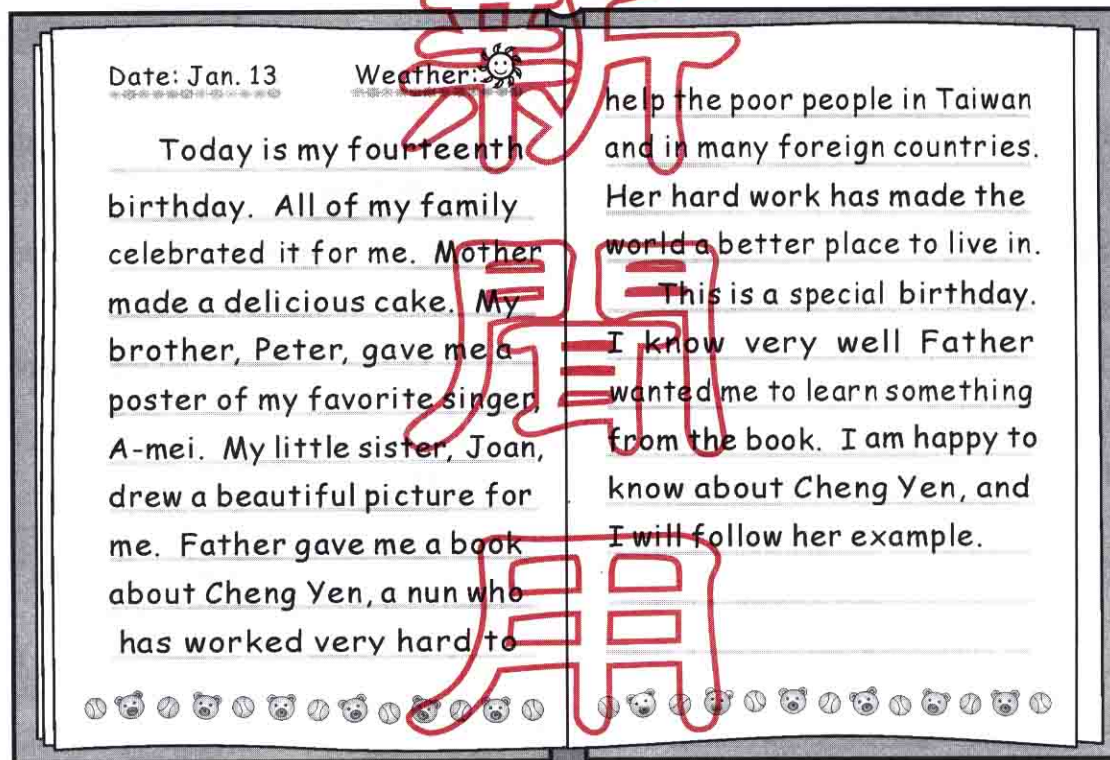 新聞用
Date: Jan. 13 Weather:
Today is my fourteenth
birthday. All of my family
celebrated it for me. Mother
made a delicious cake. My
brother, Peter, gave me a
poster of my favorite singer,
A-mei. My little sister, Joan,
drew a beautiful picture for
me. Father gave me a book
about Cheng Yen, a nun who
has worked very hard to
help the poor people in Taiwan
and in many foreign countries.
Her hard work has made the
world a better place to live in.
This is a special birthday.
I know very well Father
wanted me to learn something
from the book. I am happy to
know about Cheng Yen, and
I will follow her example.